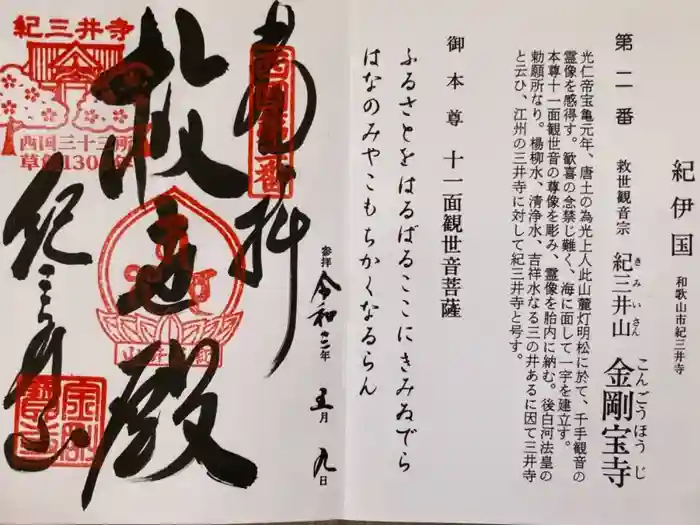 紀伊国
和歌山市紀三井寺
第二番
救世観音宗
紀三井山
きみいさん
金剛宝寺
こんごうほうじ
光仁帝宝亀元年、唐土の為光上人此山麓灯明松に於て、千手観音の
霊像を感得す。歓喜の念禁じ難く、海に面して一宇を建立す。
本尊十一面観世音の尊像を彫み、霊像を胎内に納む。後白河法皇の
勅願所なり。楊柳水、清浄水、吉祥水なる三の井あるに因て三井寺
と云ひ、江州の三井寺に対して紀三井寺と号す。
御本尊 十一面観世音菩薩
ふるさとをはるばるここにきみゐでら
はなのみやこもちかくなるらん
奉拝
西国第二番
参拝 令和二年 五月 九日
救世殿
紀三井寺
紀三井寺
西国三十三所
草創1300年